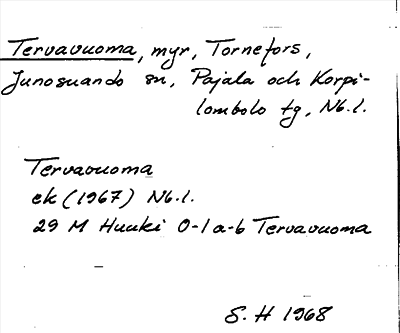 Tervavuoma, myr, Tornefors,
Junosuando sn, Pajala och Korpi-
lombolo tg, Nb. l.
Tervavuoma
ek (1967) Nb. l.
29 M Huuki 0-1 a-b Tervavuoma
S. H 1968